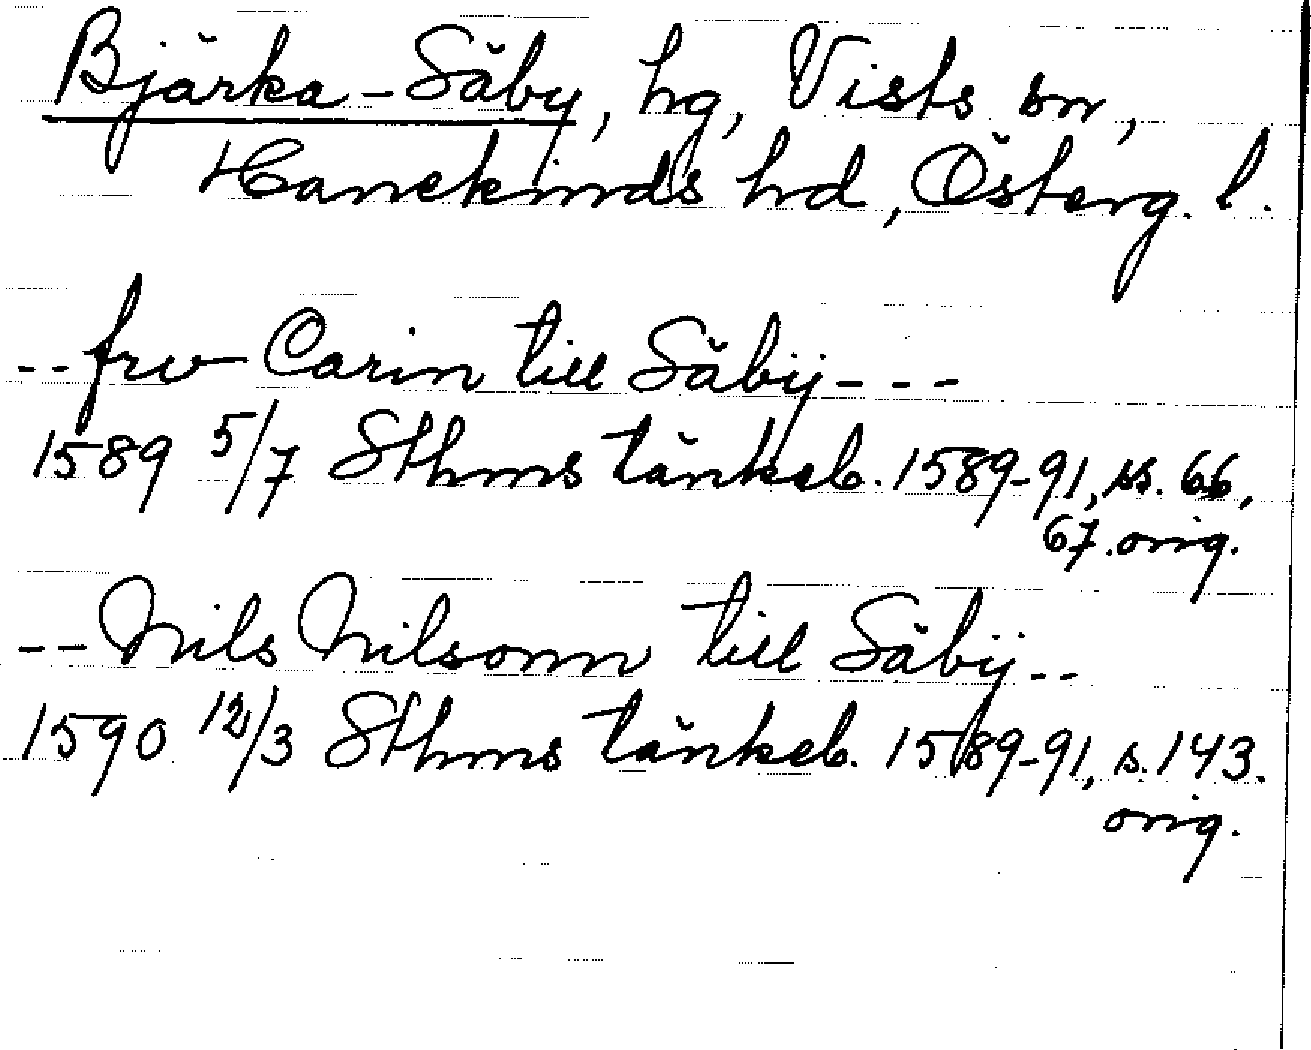 Bjärka-Säby, hg, Vists sn,
Hanekinds hd, Österg. l.
--frw Carin till Säbÿ---
1589 5/7 Sthms tänkeb. 1589-91, ss. 66,
67. orig.
--Nils Nilsonn till Säbÿ--
1590 12/3 Sthms tänkeb. 1589-91, s. 143.
orig.